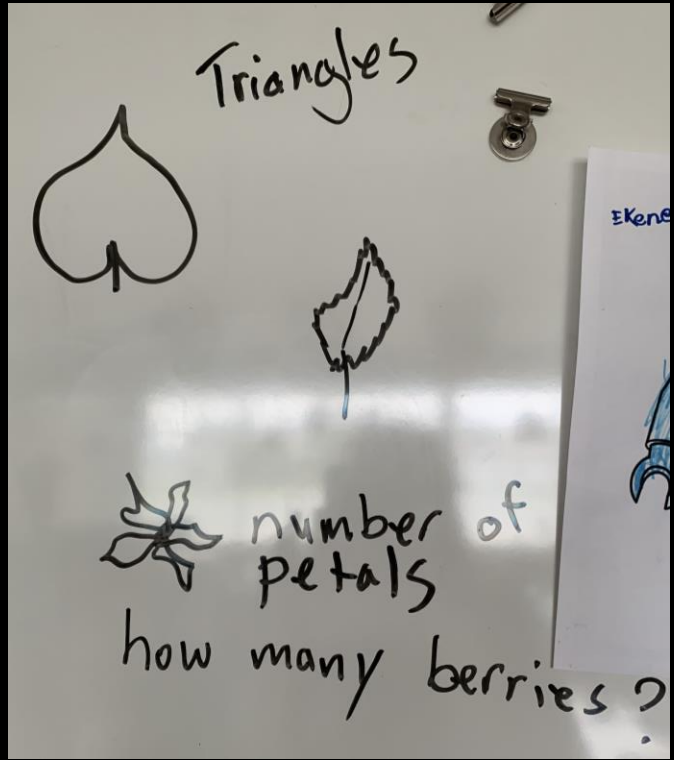 Triangles
EKene
number of
petals
how many berries?